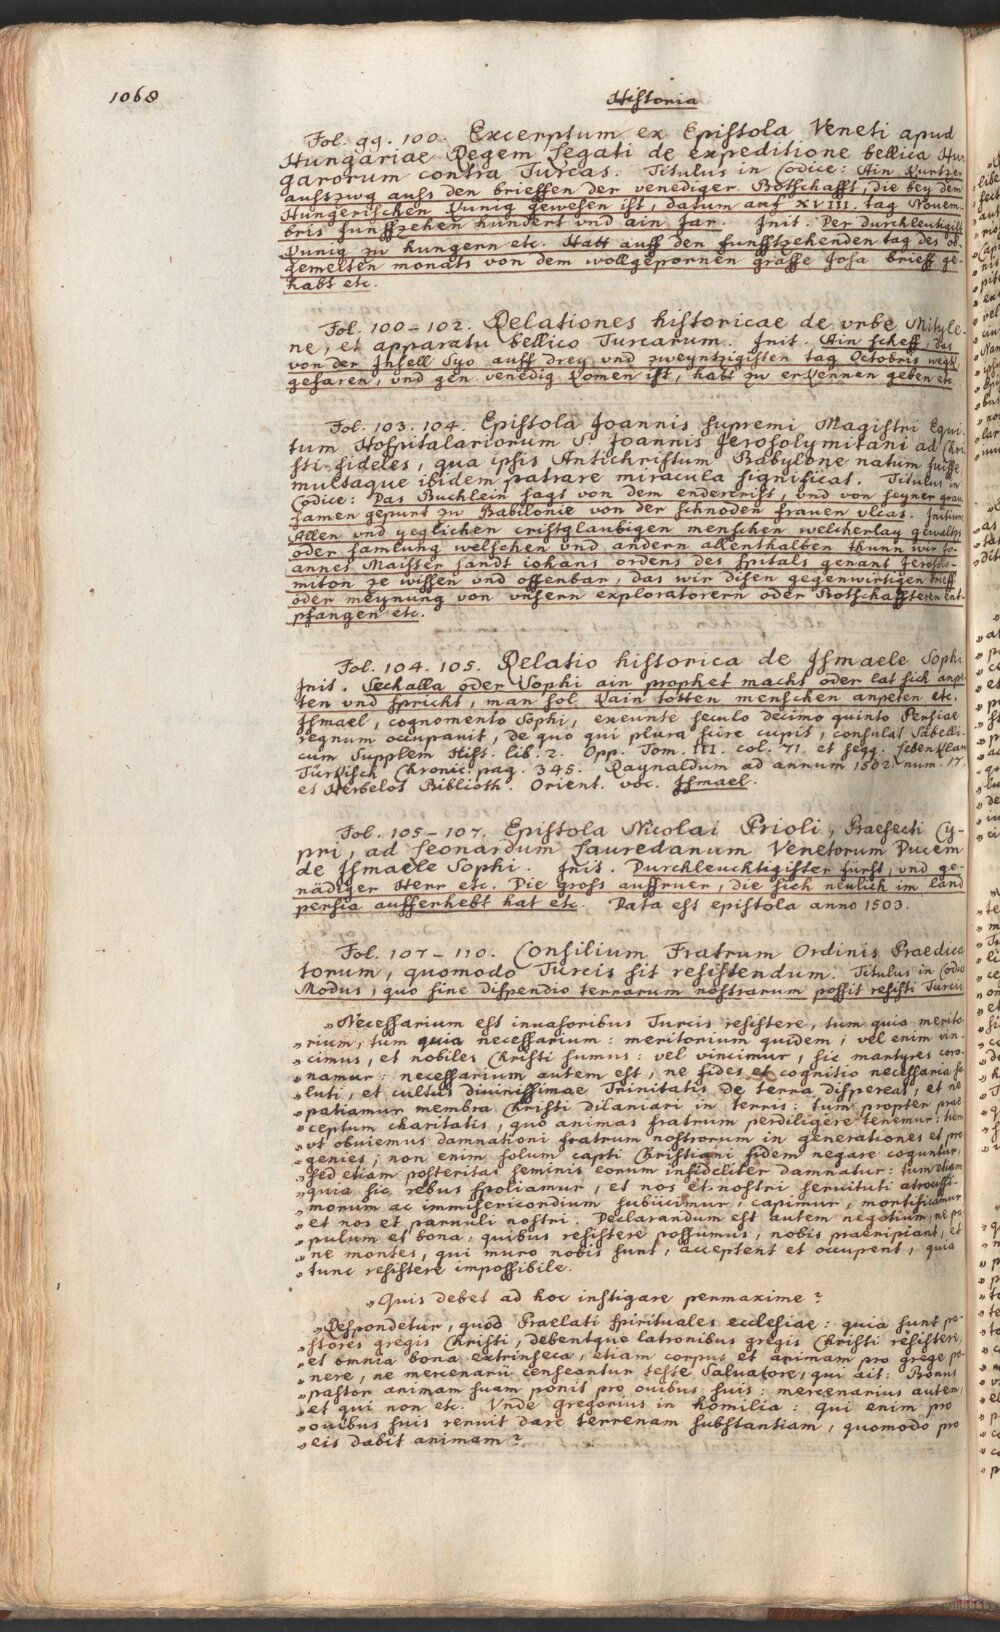 1068
Historia
Fol. 99. 100. Excerptum ex Epistola Veneti apud
Hungariae Regem Legati de expeditione bellica Hun-
garorum contra Turcas. Titulus in Codice: Ain kurtzer
aufszwg aufs den brieffen der venediger Botschafft, die bey dem
Hungerischen Kunig gewesen ist, datum auf XVIII. tag Novem-
bris funffzehen hundert vnd ain jar. Init. Der durchleuhtigist
Kunig zu hungern etc. Hatt auff den funfftzehenden tag des ob-
gemelten monats von dem wollgepornen graffe Josa brieff ge-
habt etc.
Fol. 100–102. Relationes historicae de vrbe Mityle-
ne, et apparatu bellico Turcarum. Init. Ain scheff, das
von der Insell Syo auff drey vnd zweyntzigisten tag Octobris wegk
gefaren, vnd gen venedig komen ist, habt zu erkennen geben etc.
Fol. 103. 104. Epistola Joannis supremi Magistri Equi-
tum Hospitalariorum S. Joannis Jerosolymitani ad Chri-
sti fideles, qua ipsis Antichristum Babylone natum fuisse,
multaque ibidem patrare miracula significat. Titulus in
Codice: Das Buchlein sagt von dem endercrist, vnd von seyner grau
samen gepurt zu Babilonie von der schnoden frauen vlcas. Initium:
Allen vnd yeglichen cristglaubigen menschen welcherlay gewaltzs
oder samlung welschen vnd andern allenthalben thunn wir Jo-
annes Maister sandt iohans ordens des spitals genant Jeroso-
miton ze wissen vnd offenbar, das wir disen gegenwirtigen brieff
oder meynung von vnsern exploratorern oder Botschaffteren ent-
pfangen etc.
Fol. 104. 105. Relatio historica de Ismaele Sophi
Init. Sechalla oder Sophi ain prophet macht oder lat sich anpe
ten vnd spricht, man sol kain totten menschen anpeten etc.
Ismael, cognomento Sophi, exeunte seculo decimo quinto Persiae
regnum occupauit, de quo qui plura scire cupit, consulat Sabelli-
cum Supplem. Hist. lib. 2. Opp. Tom. III. col. 71. et seqq. Lebenklau
Türkisch Chronic. pag. 345. Raynaldum ad annum 1502. num. 17.
et Herbelot Biblioth. Orient. voc. Ismael.
Fol. 105–107. Epistola Nicolai Prioli, Praefecti Cy-
pri, ad Leonardum Lauredanum Venetorum Ducem
de Ismaele Sophi. Init. Durchleuchtigister fürst, vnd ge-
nädiger Herr etc. Die gross auffruer, die sich neulich im land
persia aufferhebt hat etc. Data est epistola anno 1503.
Fol. 107–110. Consilium Fratrum Ordinis Praedica
torum, quomodo Turcis sit resistendum. Titulus in Codice
Modus, quo sine dispendio terrarum nostrarum possit resisti Turcis
„Necessarium est inuasoribus Turcis resistere, tum quia merito-
„rium, tum quia necessarium: meritorium quidem, vel enim vin-
„cimus, et nobiles Christi sumus: vel vincimur, sic martyres coro-
„namur: necessarium autem est, ne fides et cognitio necessaria sa
„luti, et cultus diuinissimae Trinitatis de terra dispereat, et ne
„patiamur membra Christi dilaniari in terris: tum propter prae-
„ceptum charitatis, quo animas fratrum perdiligere tenemur: tum
„vt obuiemus damnationi fratrum nostrorum in generationes et pro
„genies; non enim solum capti Christiani fidem negare coguntur,
„sed etiam posteritas seminis eorum infideliter damnatur: tum etiam
„quia sic rebus spoliamur, et nos et nostri seruituti atrocissi-
„morum ac immisericordium subiicimur, capimur, mortificamur
„et nos et paruuli nostri. Declarandum est autem negotium, ne po-
„pulum et bona, quibus resistere possumus, nobis praeripiant, et
„ne montes, qui muro nobis sunt, acceptent et occupent, quia
„tunc resistere impossibile.
„Quis debet ad hoc instigare permaxime?
„Respondetur, quod Praelati spirituales ecclesiae: quia sunt pa-
„stores gregis Christi, debentque latronibus gregis Christi resistere,
„et omnia bona extrinseca, etiam corpus et animam pro grege po-
„nere, ne mercenarii censeantur teste Saluatore, qui ait: Bonus
„pastor animam suam ponit pro ouibus suis: mercenarius autem,
„et qui non etc. Vnde gregorius in homilia: Qui enim pro
„ouibus suis renuit dare terrenam substantiam, quomodo pro
„eis dabit animam?